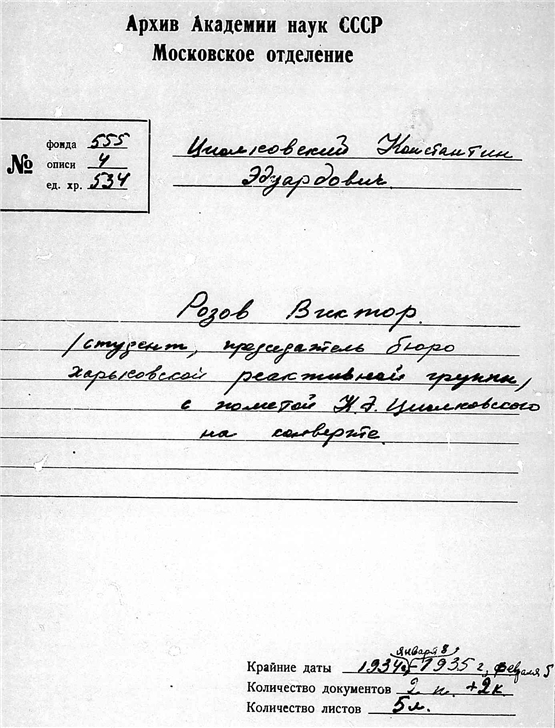 Архив Академии наук СССР
Московское отделение
№
фонда 555
описи 4
ед. хр. 534
Циолковский Константин
Эдуардович.
Розов Виктор.
/студент, председатель бюро
харьковской реактивной группы/
с пометой К.Э. Циолковского
на конверте.
января 8,
Крайние даты 1934г.-1935г, февраля 5
Количество документов 2 п. +2к
Количество листов 5л.